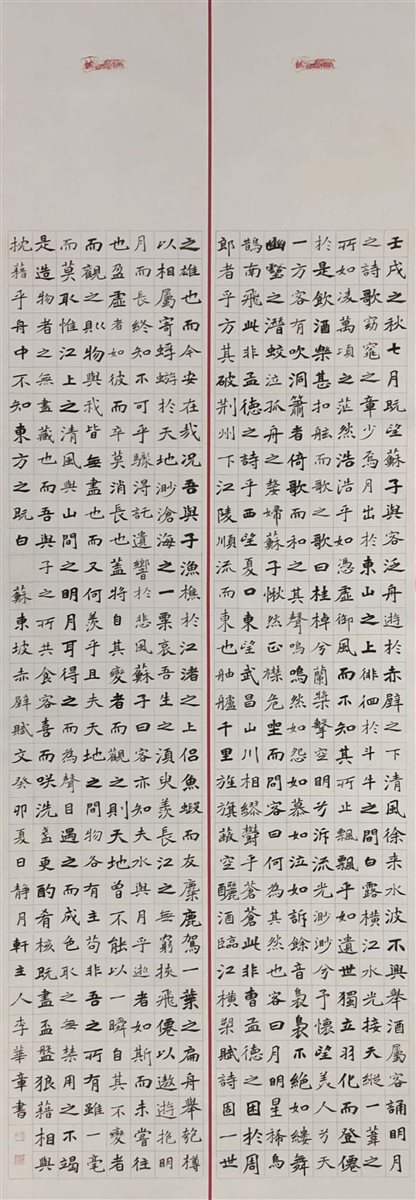 壬戌之秋七月既望蘇子與客泛舟遊於赤壁之下清風徐來水波不興舉酒屬客誦明月
之詩歌窈窕之章少焉月出於東山之上徘徊於斗牛之間白露橫江水光接天縱一葦之
所如凌萬頃之茫然浩浩乎如憑虛御風而不知其所止飄飄乎如遺世獨立羽化而登僊
於是飲酒樂甚扣舷而歌之歌曰桂棹兮蘭槳擊空明兮泝流光渺渺兮予懷望美人兮天
一方客有吹洞簫者倚歌而和之其聲嗚嗚然如怨如慕如泣如訴餘音裊裊不絕如縷舞
幽壑之潛蛟泣孤舟之嫠婦蘇子愀然正襟危坐而問客曰何為其然也客曰月明星稀烏
鵲南飛此非孟德之詩乎西望夏口東望武昌山川相繆鬱乎蒼蒼此非曹孟德之困於周
郎者乎方其破荊州下江陵順流而東也舳艫千里旌旗蔽空釃酒臨江橫槊賦詩固一世
之雄也而今安在哉況吾與子漁樵於江渚之上侶魚蝦而友麋鹿駕一葉之扁舟舉匏樽
以相屬寄蜉蝣於天地渺滄海之一粟哀吾生之須臾羨長江之無窮挾飛僊以遨遊抱明
月而長終知不可乎驟得託遺響於悲風蘇子曰客亦知夫水與月乎逝者如斯而未嘗往
也盈虛者如彼而卒莫消長也蓋將自其變者而觀之則天地曾不能以一瞬自其不變者
而觀之則物與我皆無盡也而又何羨乎且夫天地之間物各有主苟非吾之所有雖一毫
而莫取惟江上之清風與山間之明月耳得之而為聲目遇之而成色取之無禁用之不竭
是造物者之無盡藏也而吾與子之所共食客喜而咲洗盞更酌肴核既盡盃盤狼藉相與
枕藉乎舟中不知東方之既白 蘇東坡赤壁賦文癸卯夏日靜月軒主人李華章書